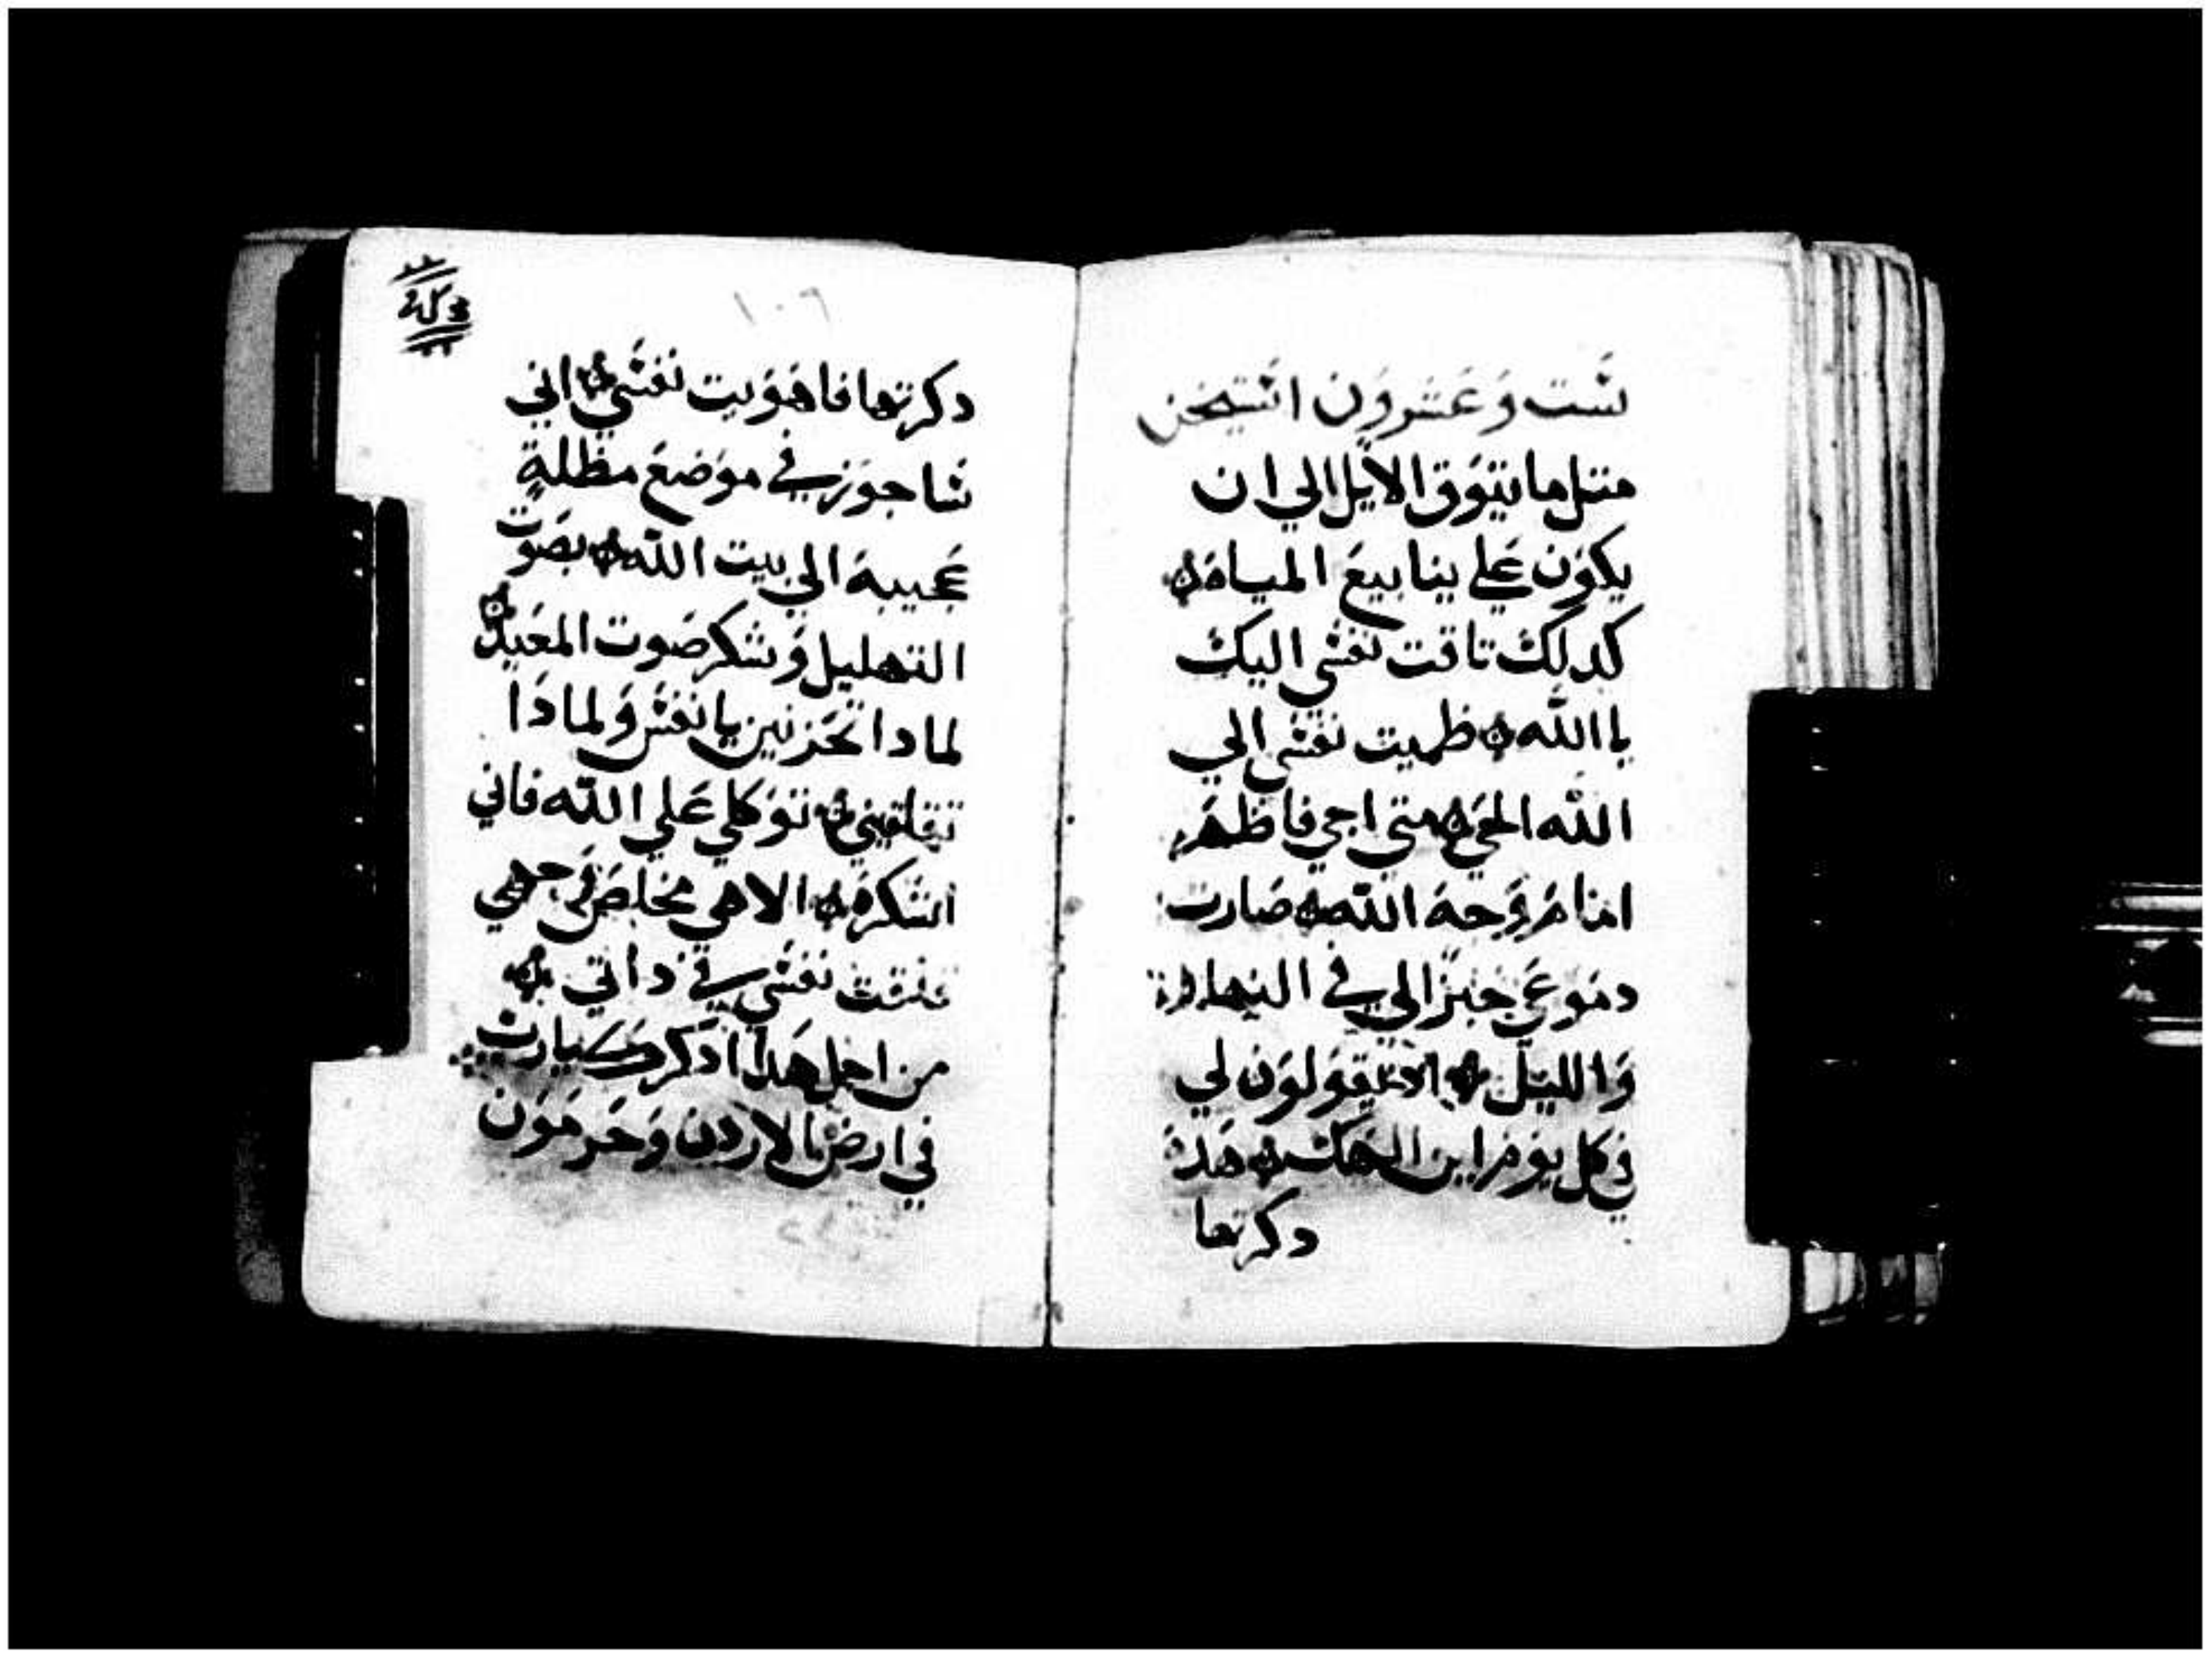 ست وعشرون استيخن
متل ما تتوق الايل الي ان
يكون علي ينابيع المياه
كدلك تاقت نفسي اليك
يا الله ظميت نفسي الي
الله الحي متي اجي فاظهر
امام وجه الله صارت
دموعي خبزا لي في النهار
والليل اد يقولون لي
في كل يوم اين الهك هده
دكرتها
١٠٦
دكرتها فاهويت نفسي اني
ساجوز في موضع مظلة
عجيبه الي بيت الله بصوت
التهليل وشكر صوت المعيد
لمادا تحزنين يا نفس ولمادا
تقلقيني توكلي علي الله فاني
اشكره الاهي مخلص وجهي
قلقت نفسي في داتي
من اجل هدا ادكرك يارب
في ارض الاردن وحرمون